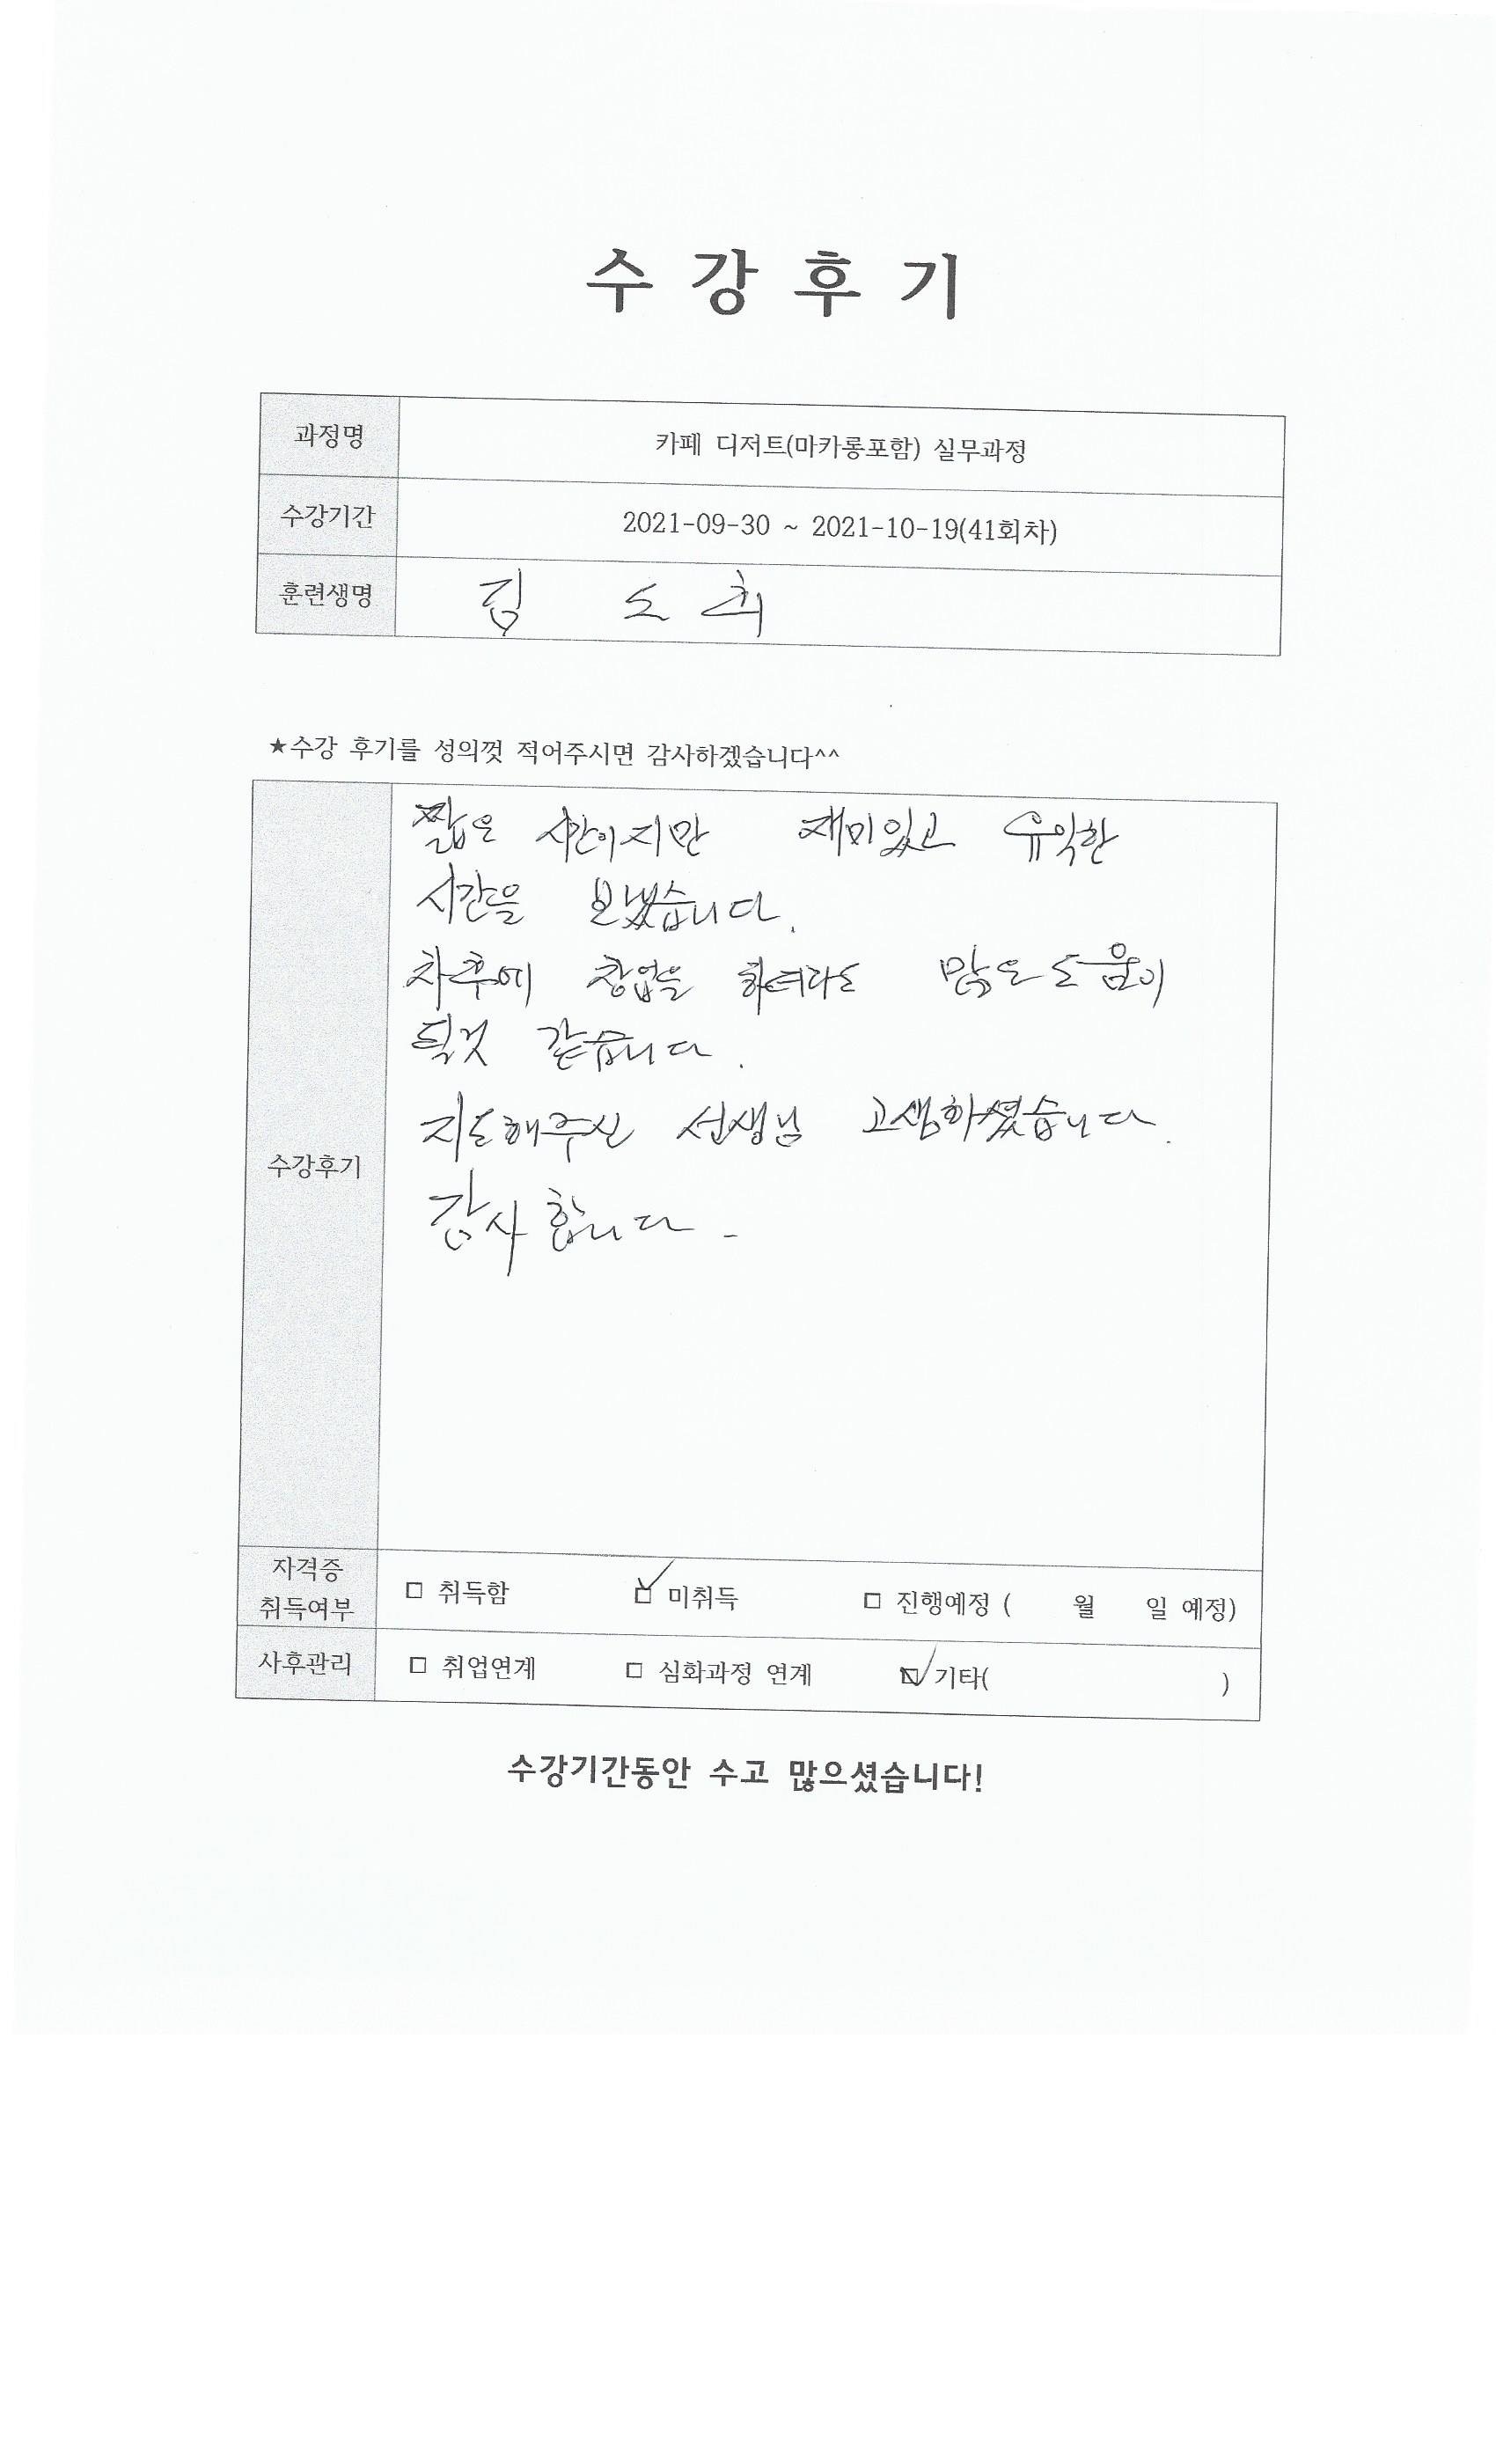 수 강 후 기
과정명 카페 디저트(마카롱포함) 실무과정
수강기간 2021-09-30 ~ 2021-10-19(41회차)
훈련생명 김 도
★수강 후기를 성의껏 적어주시면 감사하겠습니다^^
짧은 시간이지만 재미있고 유익한
시간을 보냈습니다.
차후에 창업을 하더라도 많은 도움이
될것 같습니다.
지도해주신 선생님 고생하셨습니다.
감사합니다.
수강후기
자격증 취득여부 □ 취득함 ☑ 미취득 □ 진행예정 ( 월 일 예정)
사후관리 □ 취업연계 □ 심화과정 연계 ☑ 기타( )
수강기간동안 수고 많으셨습니다!